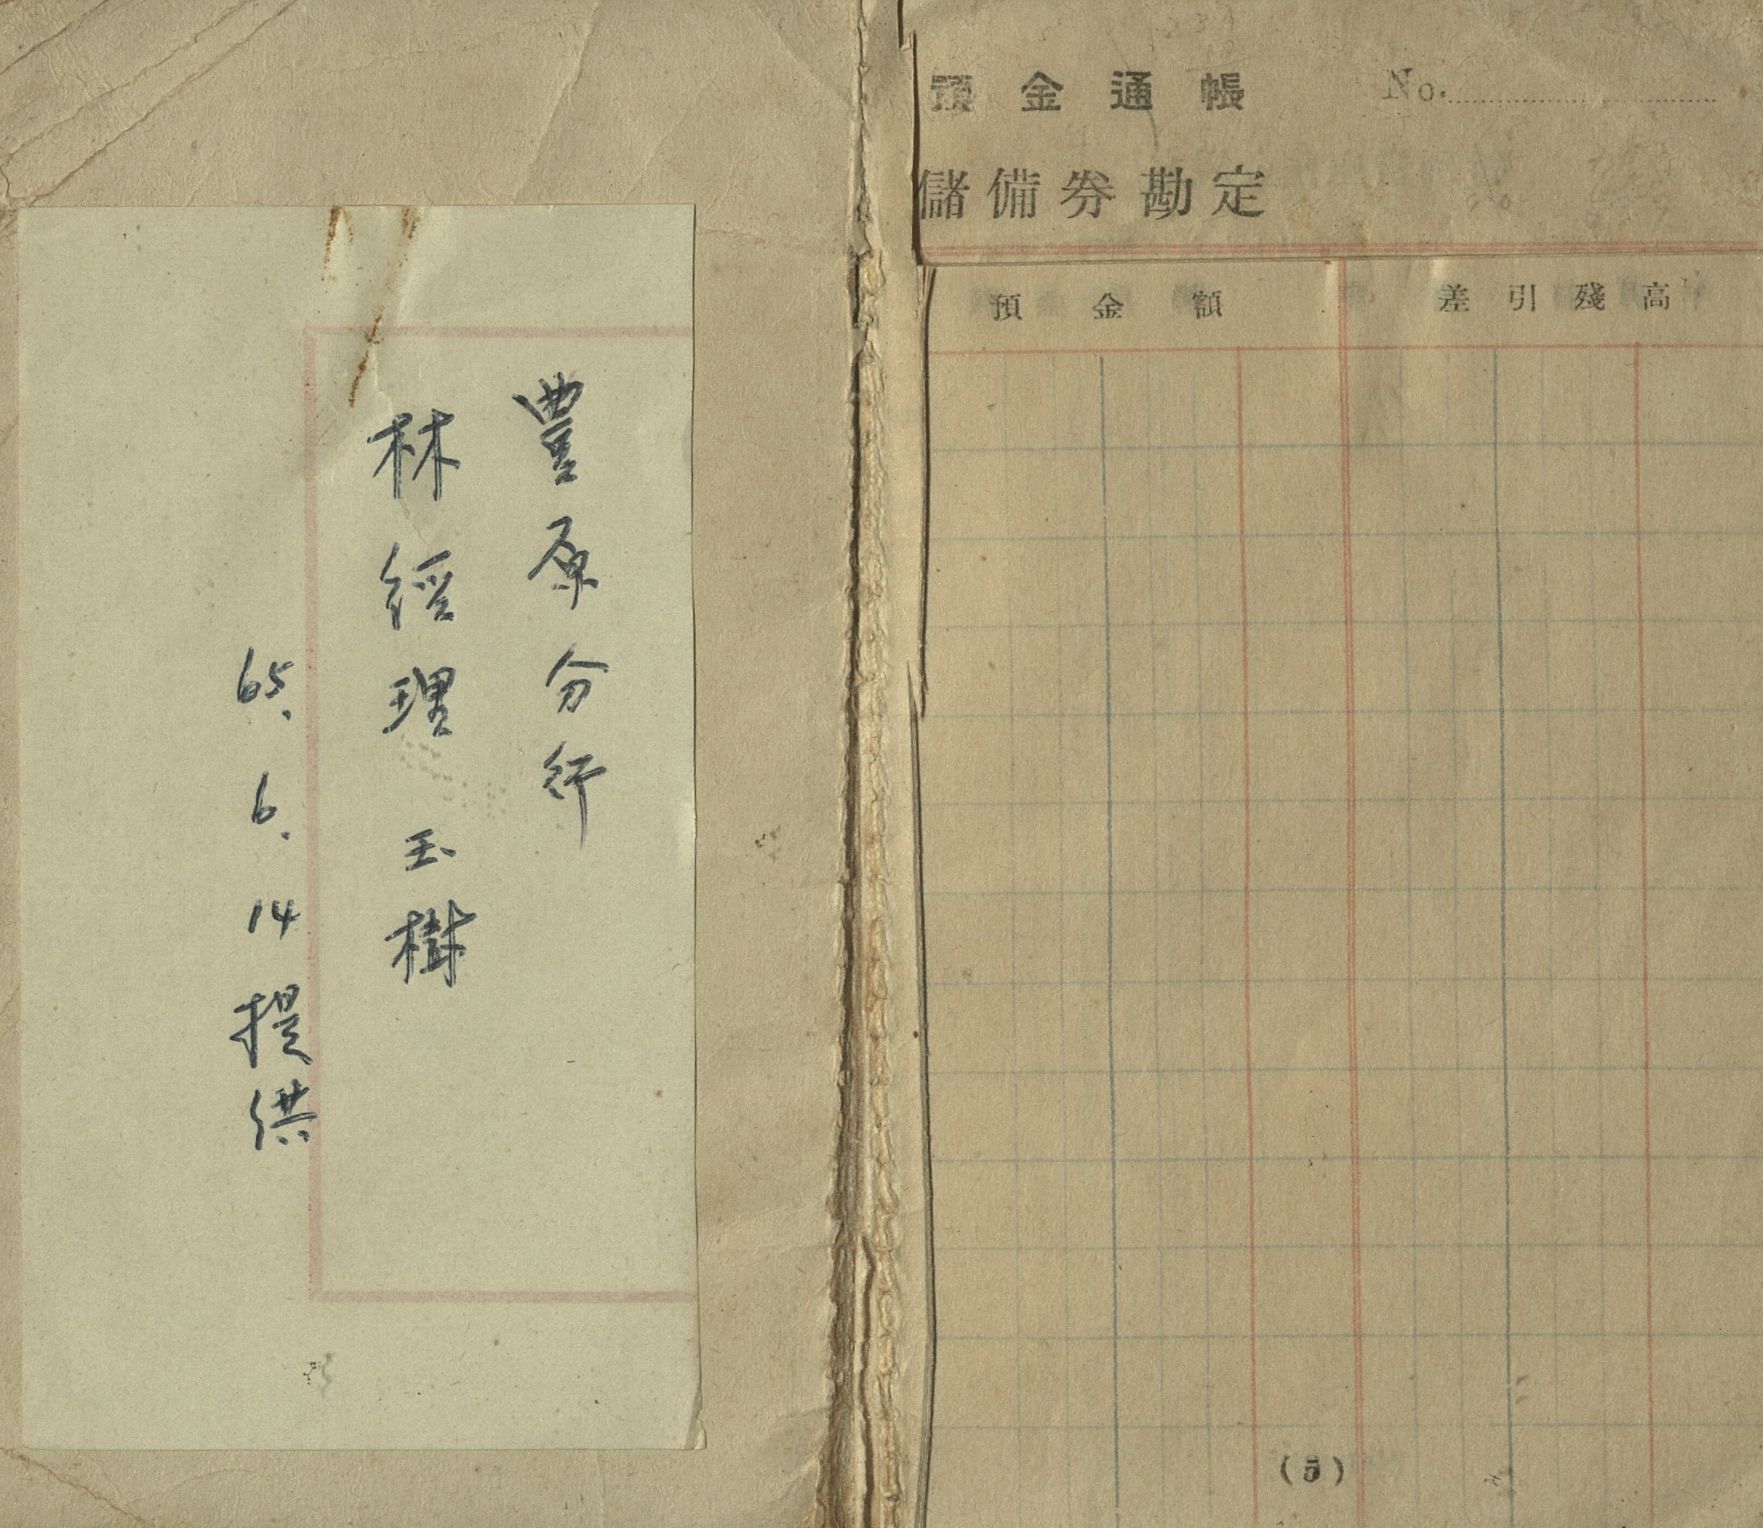 豊原分行
林經理 玉樹
65. 6. 14 提供
預金通帳 No.
儲備券勘定
預金額 差引殘高
(5)